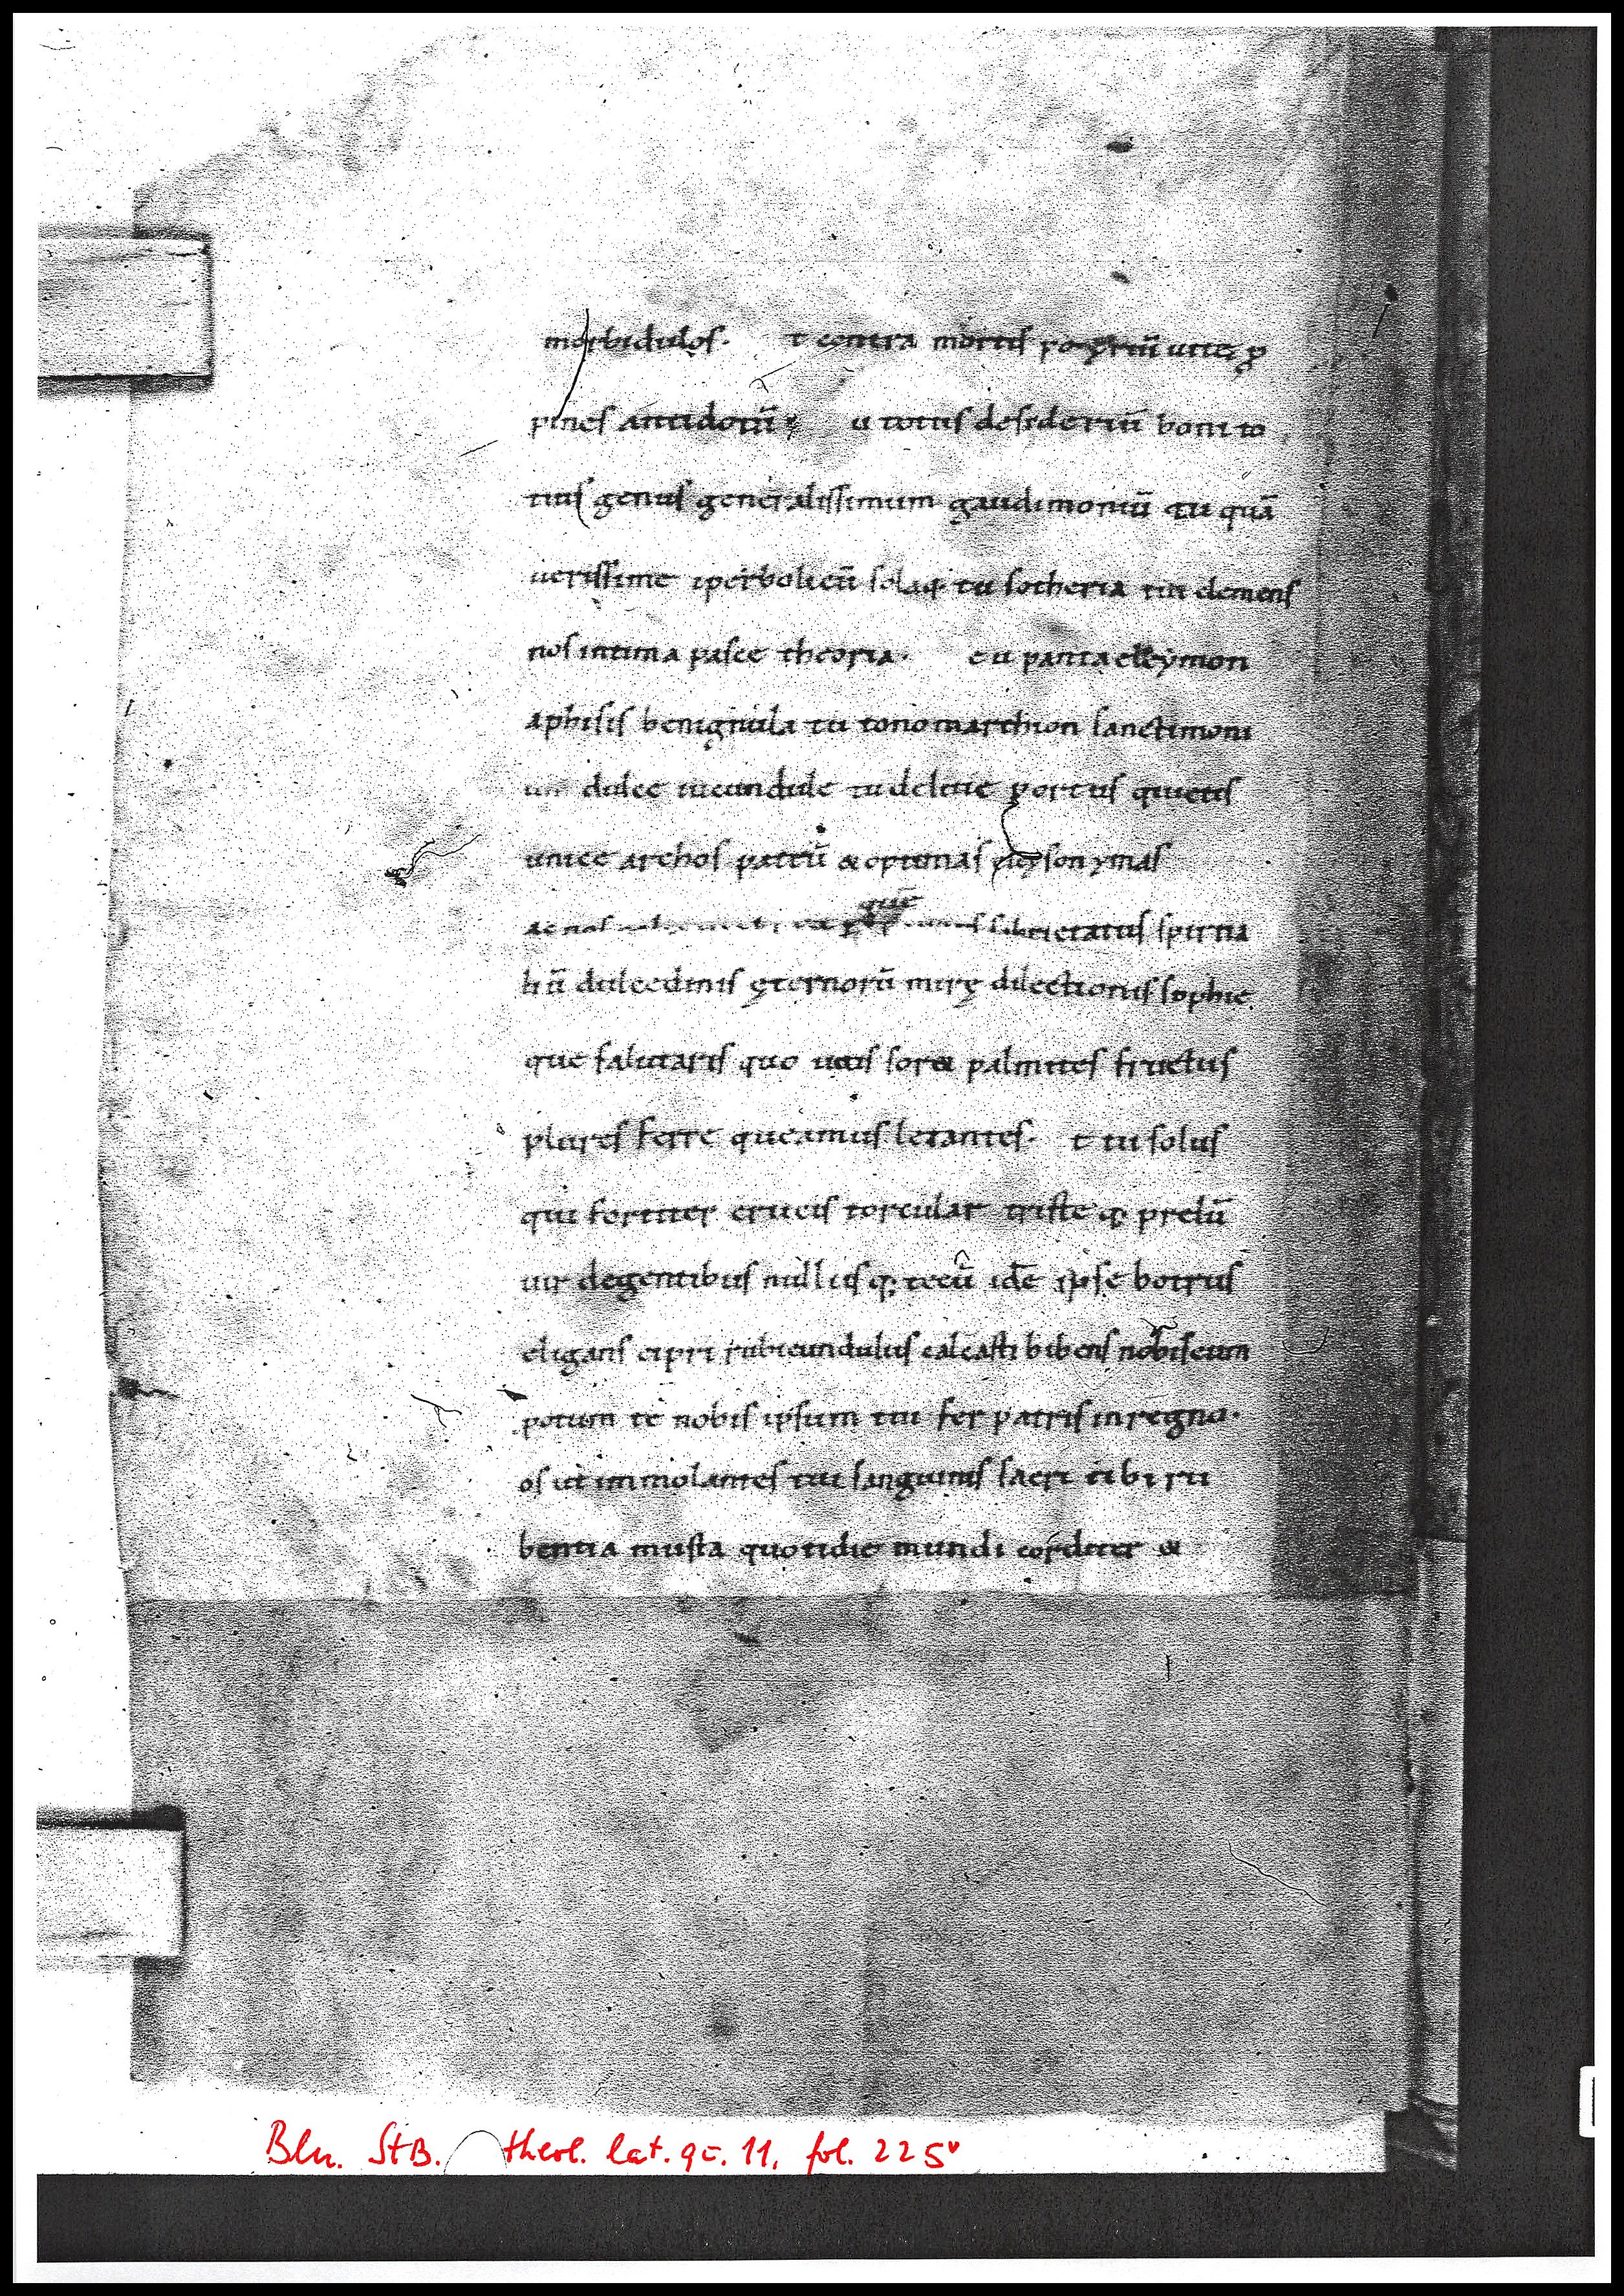 morbidulos. t contra mortis uitę ꝓ
pines antidotū u totius desideriū boni to
tius genus generalissimum gaudimoniū tu quā
uerissime iperbolicū solaq; tu sotheria tui clemens
nos intima pasce theoria. eu panta eleymon
aphisis benignula tu tonomarchion sanctimoni
dulce iucundule tu portus quietis
unice archos pattū & optimas
ac nos quē sobrietatus spirita
liū dulcedinis ęternorū mirę dilectionis sophie
que salutaris quo uitis soret palmites fructus
plures ferre queamus letantes. t tu solus
qui fortiter crucis torcular triste q; prelū
uir degentibus nullusq; tecū idē ipse botrus
eligans cipri rubicundulus calcasti bibens nobiscum
potum te nobis ipsum tui fer patris in regno.
os ut immolantes tui sanguinis sacri tibi ru
bentia musta quotidie mundi corditer &
Bln. StB. theol. lat. qu. 11, fol. 225v